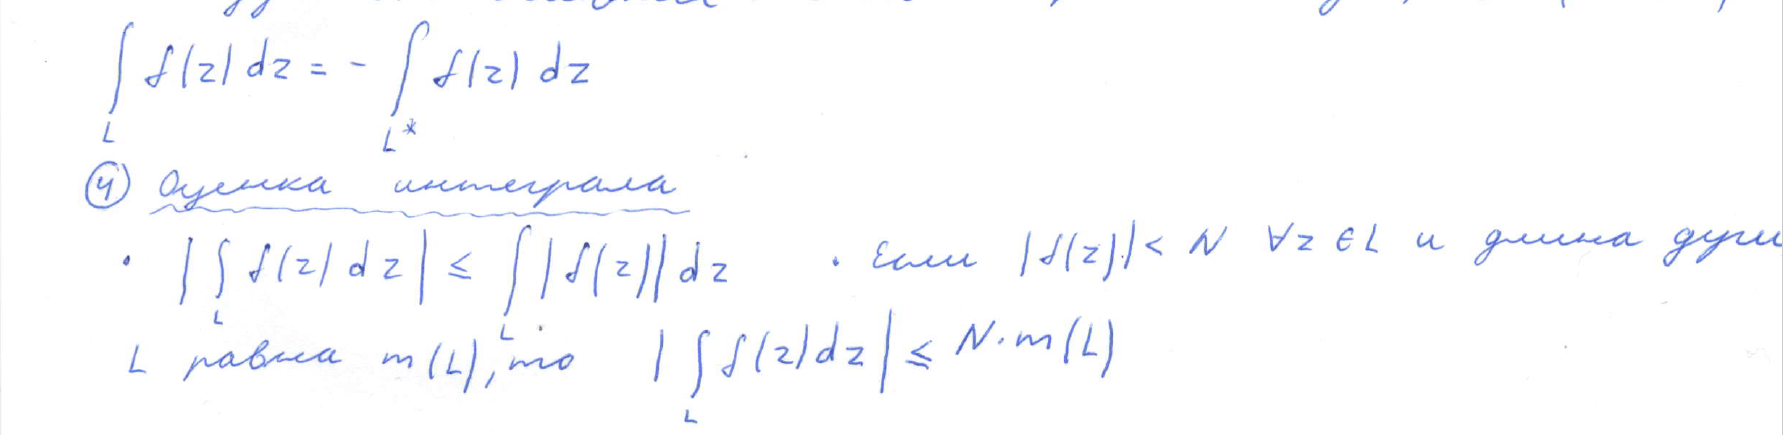 ∫_L f(z) dz = - ∫_{L*} f(z) dz
④ Оценка интеграла
• |∫_L f(z) dz| ≤ ∫_L |f(z)| dz • Если |f(z)| < N ∀z ∈ L и длина дуги
L равна m(L), то |∫_L f(z) dz| ≤ N·m(L)